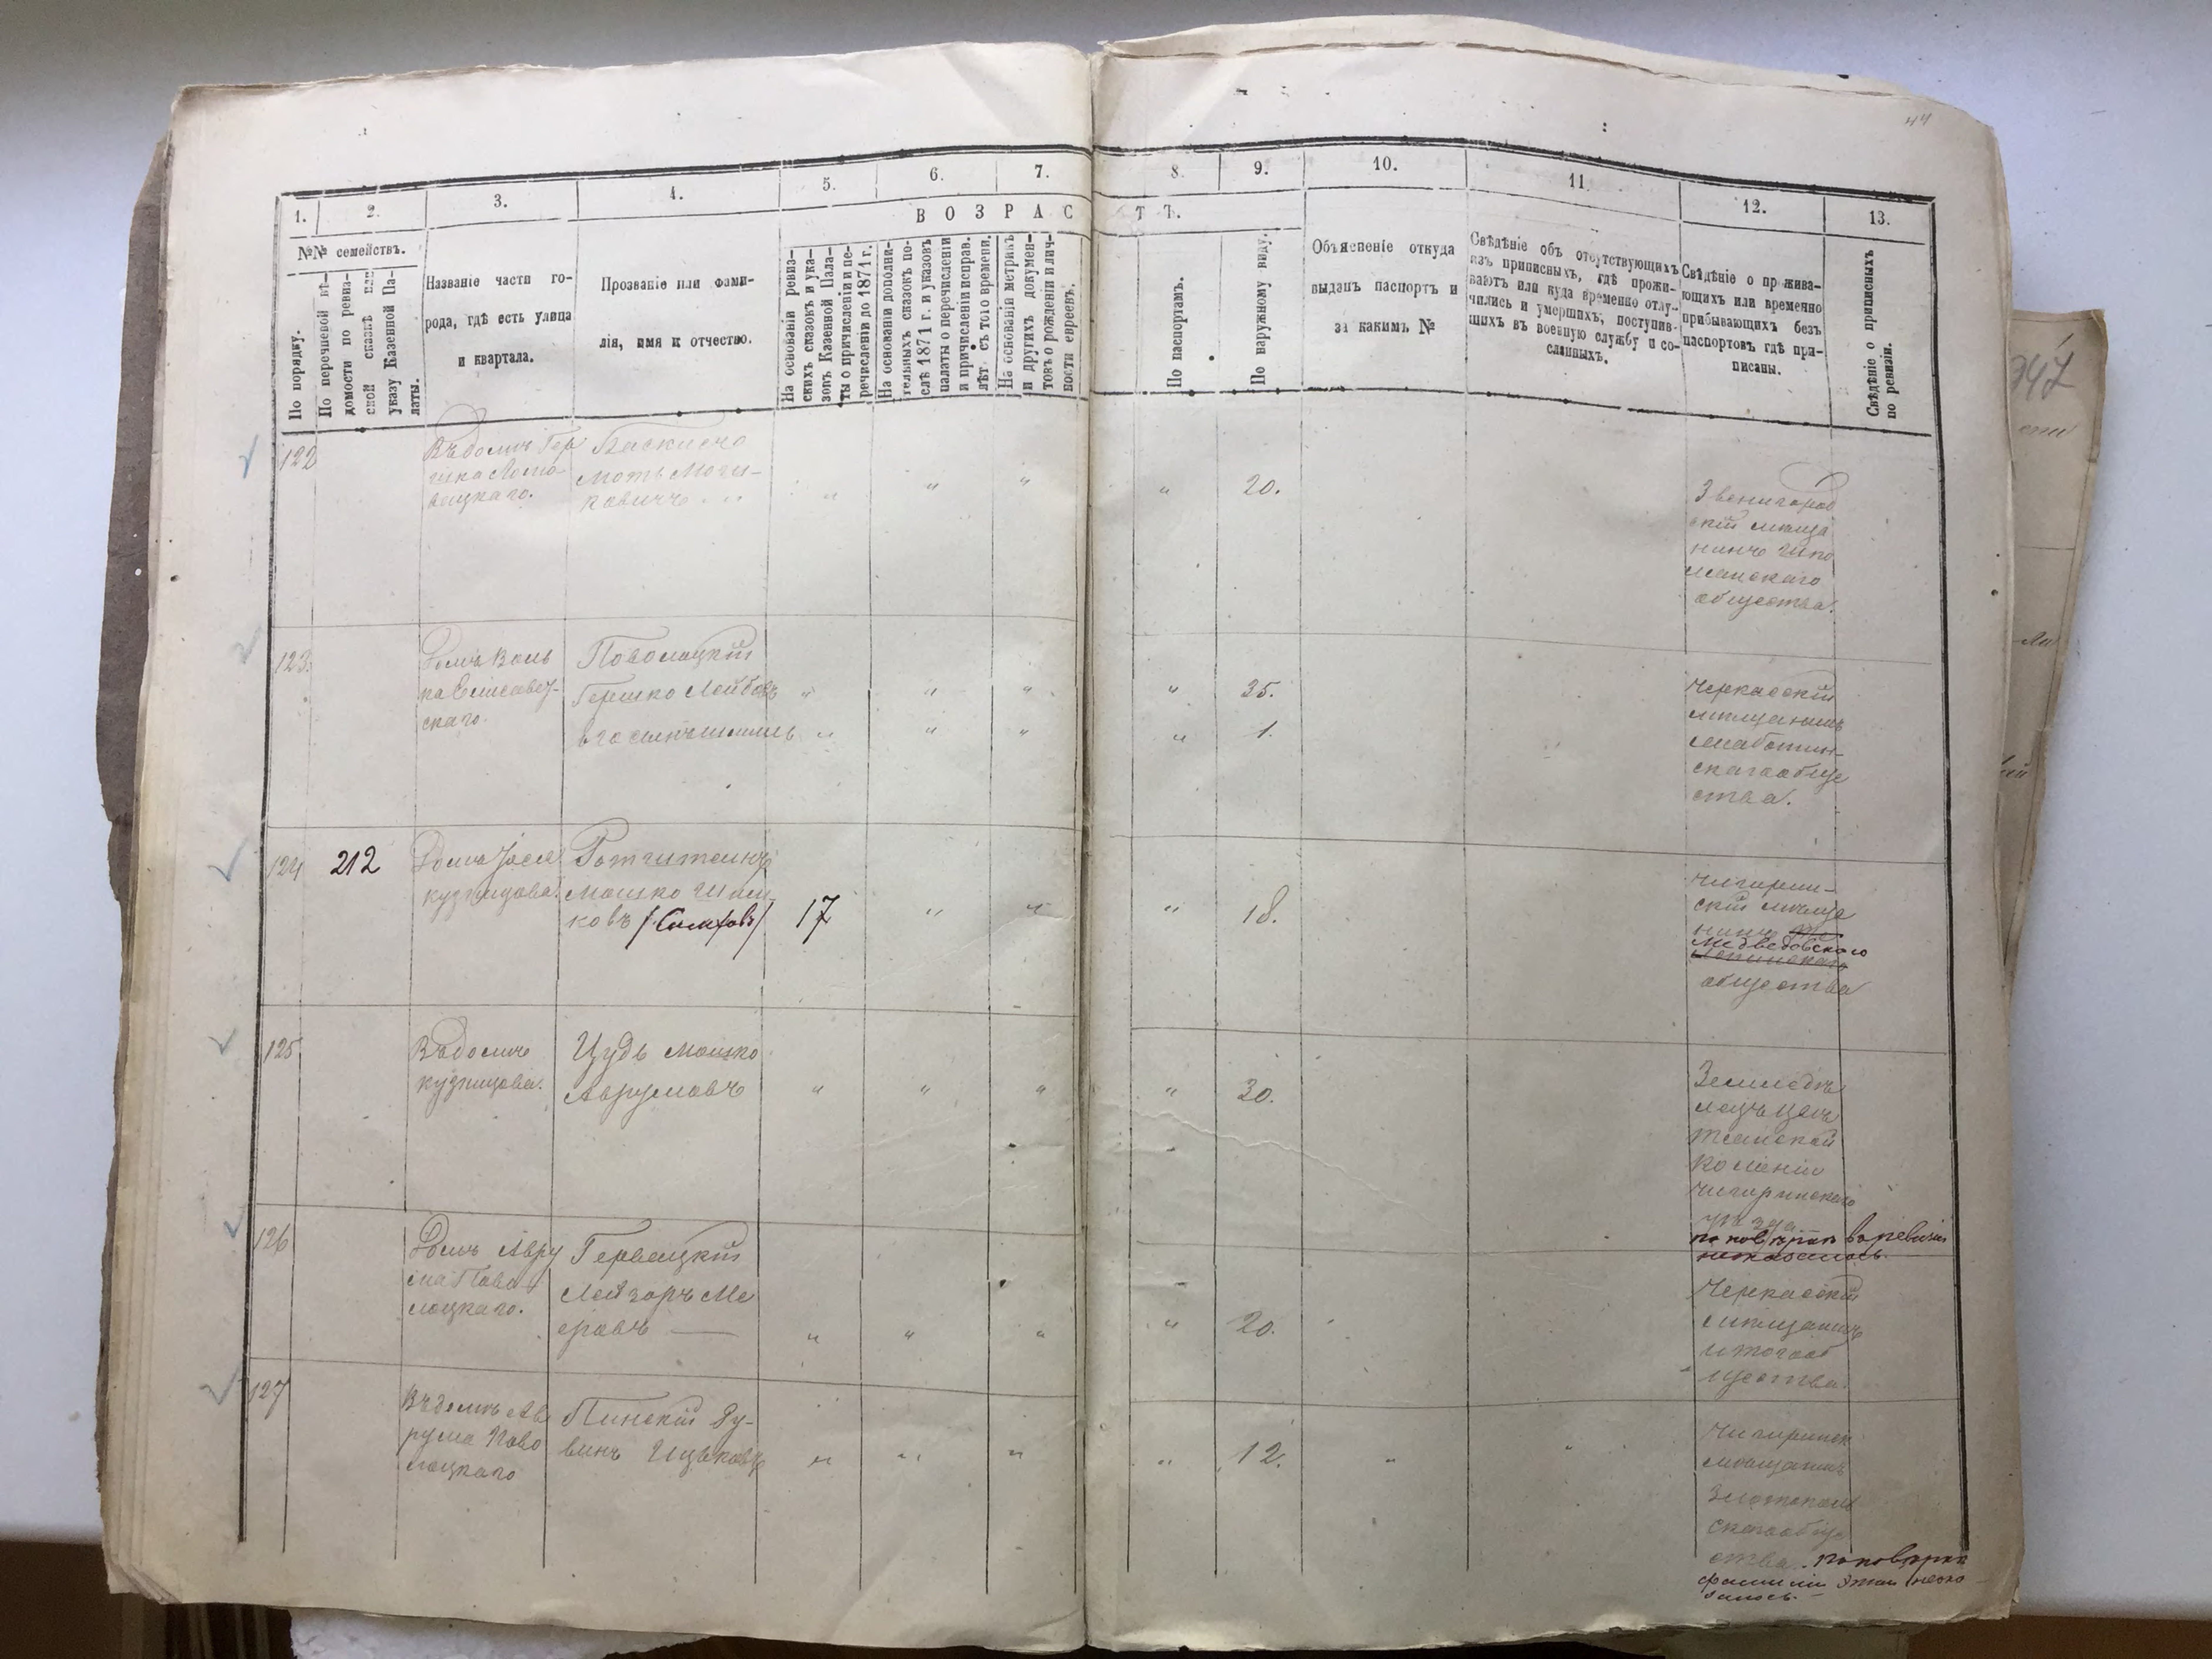 44
1.
2.
3.
4.
5.
6.
7.
8.
9.
10.
11.
12.
13.
В О З Р А С Т Ъ.
№№ семействъ.
По порядку.
По перечневой вѣ-
домости по ревиз-
ской сказкѣ или
указу Казенной Па-
латы.
Названіе части го-
рода, гдѣ есть улица
и квартала.
Прозваніе или фами-
лія, имя и отчество.
На основаніи ревиз-
скихъ сказокъ и ука-
зовъ Казенной Пала-
ты о причисленіи и пе-
речисленіи до 1871 г.
На основаніи дополни-
тельныхъ сказокъ по-
слѣ 1871 г. и указовъ
палаты о перечисленіи
и причисленіи исправ.
лѣт. съ того времени.
На основаніи метрикъ
и другихъ докумен-
товъ о рожденіи и лич-
ности евреевъ.
По паспортамъ.
По наружному виду.
Объясненіе откуда
выданъ паспортъ и
за какимъ №
Свѣдѣніе объ отсутствующихъ
изъ приписныхъ, гдѣ прожи-
ваютъ или куда временно отлу-
чились и умершихъ, поступив-
шихъ въ военную службу и со-
сланныхъ.
Свѣдѣніе о прожива-
ющихъ или временно
прибывающихъ безъ
паспортовъ гдѣ при-
писаны.
Свѣдѣніе о приписныхъ
по ревизіи.
122
Въ домѣ Гер
шка
Мотъ
" " " "
20.
Звенигород
скій мѣща
нинъ Шпо
лянскаго
общества.
123.
Домъ Воль
ка Елисавет-
скаго.
Поволоцкій
Гершко Лейбовъ
его сынъ
" " " "
35.
" " " "
1.
Черкасскій
мѣщанинъ
Смаботин-
скаго обще
ства.
124
212
Домъ
кузнецова.
Ротштейнъ
Мошко
17
" " "
18.
Чигирин-
скій мѣща
нинъ
Медведовского
общества
125
Въ домѣ
кузнецова.
Цудь Мошко
Аврумовъ
" " " "
30.
Земледѣ
лецъ
колоніи
Чигиринскаго
уѣзда
по повѣркѣ въ ревизіи
неоказалось.
126
Домъ Авру
ма Паво
лоцкаго.
Лейзоръ Ме
еровъ
" " " "
20.
Черкасскій
мѣщанинъ
общества.
127
Въ домѣ Ав
рума Паво
лоцкаго
Пинскій Ру-
винъ Ицьковъ
" " " "
12.
" "
Чигиринск
мѣщанинъ
Златополь
скаго обще
ства. по повѣрке
фамиліи этой неока
залось.